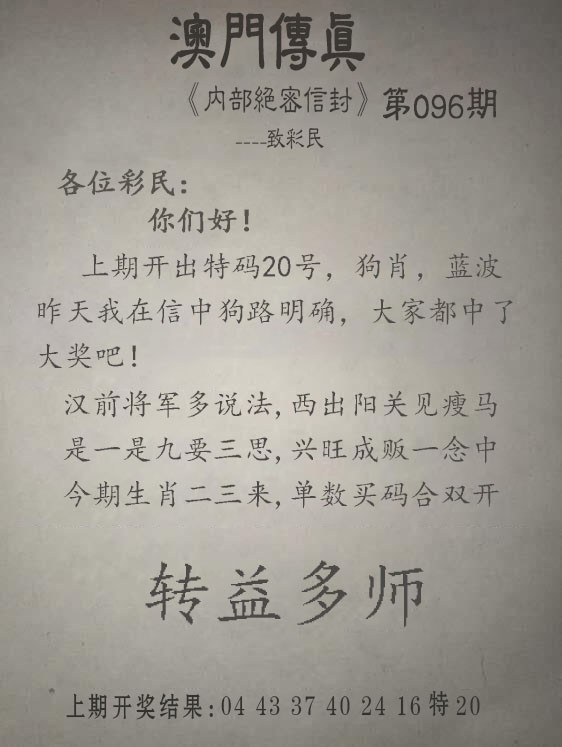 澳門傳眞
《内部絕密信封》第096期
----致彩民
各位彩民：
你们好！
上期开出特码20号，狗肖，蓝波
昨天我在信中狗路明确，大家都中了
大奖吧！
汉前将军多说法，西出阳关见瘦马
是一是九要三思，兴旺成贩一念中
今期生肖二三来，单数买码合双开
转益多师
上期开奖结果：04 43 37 40 24 16 特 20